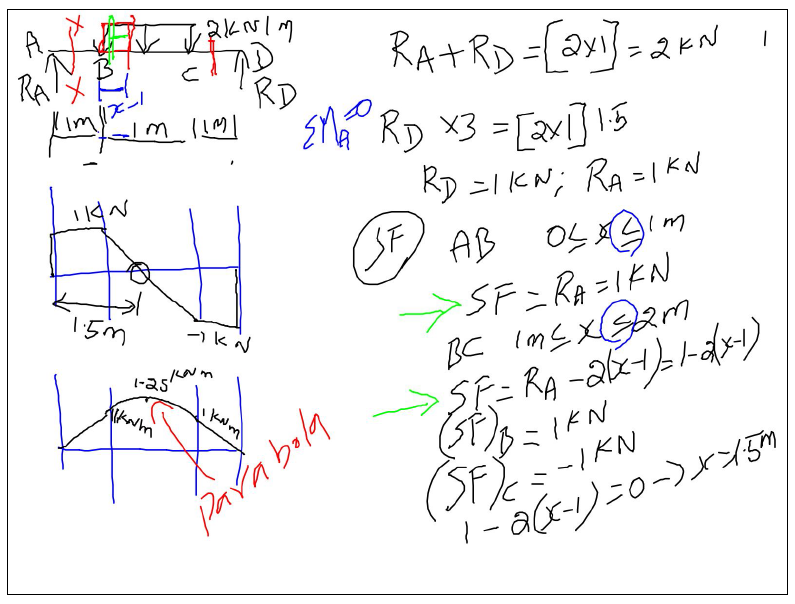 A X B C D 2KN/m
RA X x-1 RD
1m 1m 1m
1KN
1.5m
-1KN
1.25 KNm
1KNm 1KNm
Parabola
RA + RD = [2x1] = 2KN 1
ΣMA=0 RD x3 = [2x1] 1.5
RD = 1KN; RA = 1KN
SF AB 0≤x≤1m
SF = RA = 1KN
BC 1m≤x≤2m
SF = RA - 2(x-1) = 1-2(x-1)
(SF)B = 1KN
(SF)C = -1KN
1-2(x-1) = 0 → x=1.5m